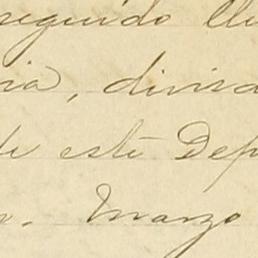 seguido lle
ia, divisa
de este Dep
Marzo